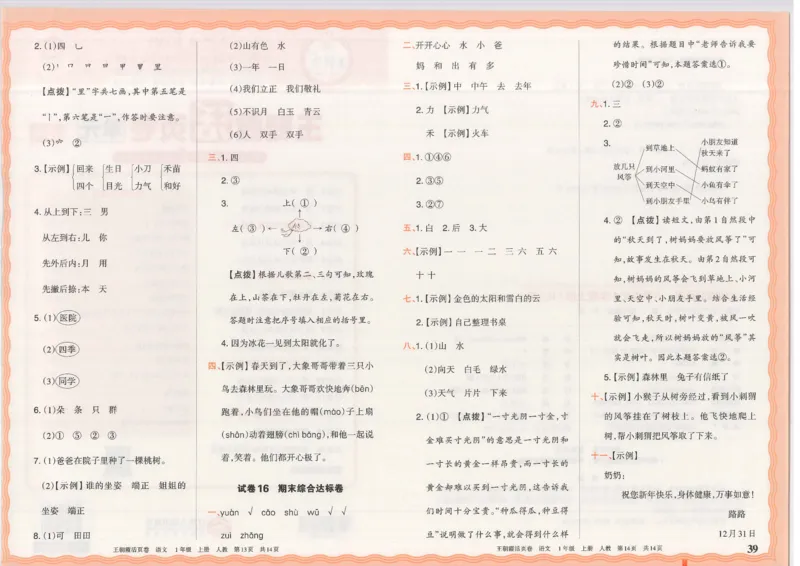 2.(1)四 乚
(2)丨 冂 日 日 甲 甲 里
【点拨】“里”字共七画,其中第五笔是
“丨”,第六笔是“一”,作答时要注意。
(3)宀 ②
3.【示例】回来 生日 小刀 禾苗
四个 目光 力气 和好
4.从上到下:三 男
从左到右:儿 你
先外后内:月 用
先撇后捺:本 天
5.(1)医院
(2)四季
(3)同学
6.(1)朵 条 只 群
(2)① ⑤ ② ③
7.(1)爸爸在院子里种了一棵桃树。
(2)【示例】谁的坐姿 端正 姐姐的
坐姿 端正
8.(1)可 田田
(2)山有色 水
(3)一年 一日
(4)我们立正 我们敬礼
(5)不识月 白玉 青云
(6)人 双手 双手
三、1.四
2.③
3.
上(①)
左(③) 右(④)
下(②)
【点拨】根据儿歌第二、三句可知,玫瑰
在上,山茶在下,牡丹在左,菊花在右。
答题时注意把序号填入相应的括号里。
4.因为冰花一见到太阳就化了。
四、【示例】春天到了,大象哥哥带着三只小
鸟去森林里玩。大象哥哥欢快地奔(bēn)
跑着,小鸟们坐在他的帽(mào)子上扇
(shān)动着翅膀(chì bǎng),和他一起说
着,笑着。他们都开心极了。
试卷16 期末综合达标卷
一、yuán √ cǎo shù wū √ √
zuì zhǎng
王朝霞活页卷 语文 1年级 上册 人教 第13页 共14页
二、开开心心 水 小 爸
妈 和 出 有 多
三、1.【示例】中 中午 去 去年
2.力 【示例】力气
禾 【示例】火车
四、1.①④⑥
2.③⑤
3.②⑦
五、1.白 2.后 3.大
六、【示例】一 一 一 二 三 六 五 六
十 十
七、1.【示例】金色的太阳和雪白的云
2.【示例】自己整理书桌
八、1.(1)山 水
(2)向天 白毛 绿水
(3)天气 片片 下来
2.(1)① 【点拨】“一寸光阴一寸金,寸
金难买寸光阴”的意思是一寸光阴和
一寸长的黄金一样昂贵,而一寸长的
黄金却难以买到一寸光阴,这告诉我
们时间十分宝贵。“种瓜得瓜,种豆得
豆”说明做了什么事,就会得到什么样
王朝霞活页卷 语文 1年级 上册 人教 第14页 共14页
的结果。根据题目中“老师告诉我要
珍惜时间”可知,本题答案选①。
(2)② (3)②
九、1.三
2.②
3.
放几只
风筝
到草地上
到小河里
到天空中
到小朋友手里
小朋友知道
秋天来了
蚂蚁有家了
小鱼有伞了
小鸟有伴了
4.② 【点拨】读短文,由第1自然段中
的“秋天到了,树妈妈要放风筝了”可
知,故事发生在秋天。由第2自然段可
知,树妈妈的风筝会飞到草地上、小河
里、天空中、小朋友手里。结合生活经
验可知,秋天时,树叶变黄,被风一吹
就会飞走,所以树妈妈放的“风筝”其
实是树叶。因此本题答案选②。
5.【示例】森林里 兔子有信纸了
十、【示例】小猴子从树旁经过,看到小刺猬
的风筝挂在了树枝上。他飞快地爬上
树,帮小刺猬把风筝取了下来。
十一、【示例】
奶奶:
祝您新年快乐,身体健康,万事如意!
路路
12月31日
39